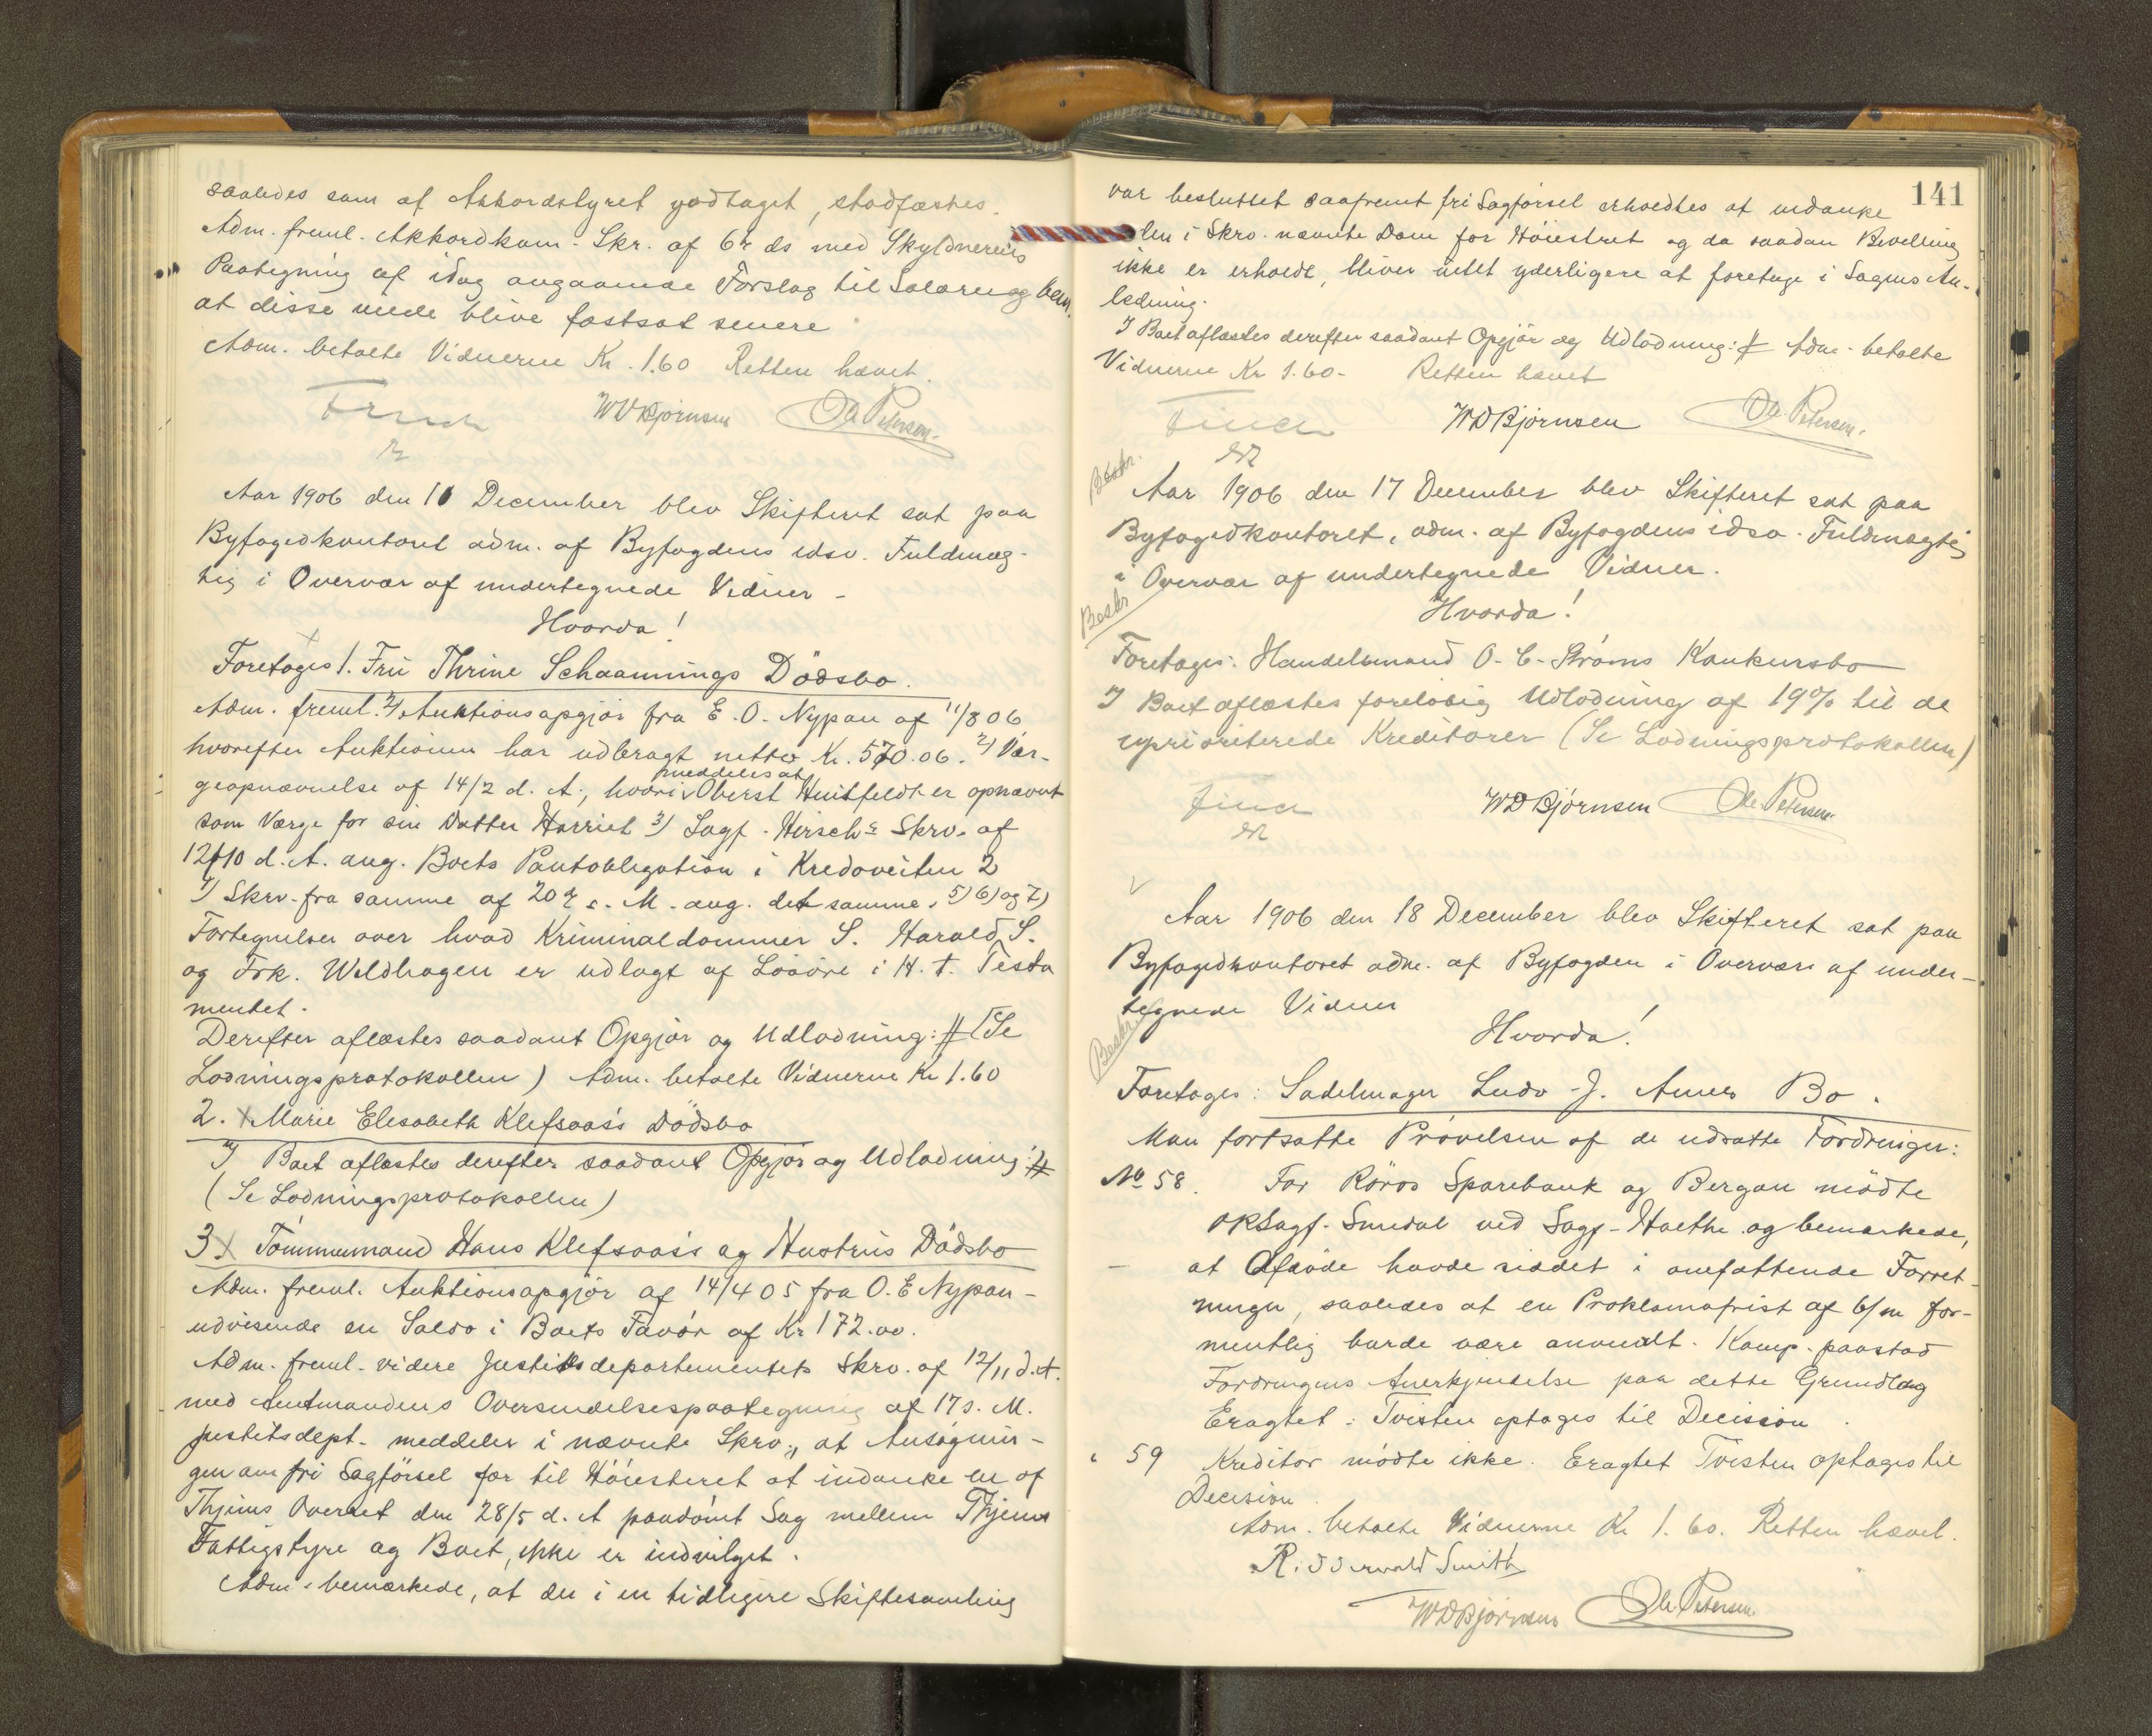 saaledes som af Akkordstyret godtaget, stadfæstes.
Adm. freml. Akkordkom. Skr. af 6 ds med Skyldnerens
Paategning af idag angaaende Forslag til Salærer og bem.
at disse vilde blive fastsat senere
Adm. betalte Vidnerne Kr. 1.60 Retten hævet.
Finch WDBjørnsen Ole Petersen
Aar 1906 den 11 December blev Skifteret sat paa
Byfogedkontoret adm. af Byfogdens edsv. Fuldmæg-
tig i Overvær af undertegnede Vidner -
Hvorda!
Foretoges 1. Fru Thrine Schaannings Dödsbo.
Adm. freml. 1) Auktionsopgjör fra E. O. Nypan af 11/8 06
hvorefter Auktionen har udbragt netto Kr. 570.06. 2) Vær-
geopnævnelse af 14/2 d. A., hvori meddeles at Oberst Huitfeldt er opnævnt
som Værge for sin Datter Harriet 3) Sagf. Hirschs Skrv. af
12/10 d. A. ang. Boets Pantobligation i Kredoveiten 2
4) Skrv. fra samme af 20 s. M. ang. det samme. 5) 6) og 7)
Fortegnelser over hvad Kriminaldommer S. Harald S.
og Frk. Wildhagen er udlagt af Lösöre i H. t. Testa
mentet.
Derefter aflæstes saadant Opgjör og Udlodning: # (Se
Lodningsprotokollen) Adm. betalte Vidnerne Kr 1.60
2. Marie Elisabeth Klefsaas's Dödsbo
I Boet aflæstes derefter saadant Opgjör og Udlodning: #
(Se Lodningsprotokollen)
3 Tömmermand Hans Klefsaas's og Hustrus Dödsbo
Adm. freml. Auktionsopgjör af 14/4 05 fra O. E Nypan -
udvisende en Saldo i Boets Favör af Kr 172.00.
Adm. freml. videre Justitsdepartementets Skrv. af 12/11 d. A.
med Amtmandens Oversendelsespaategning af 17 s. M.
Justitsdept. meddeler i nævnte Skrv., at Ansögnin-
gen om fri Sagförsel for til Höiesteret at indanke en af
Thjems Overret den 28/5 d. A paadömt Sag mellem Thjems
Fattigstyre og Boet, ikke er indvilget.
Adm. bemærkede, at der i en tidligere Skiftesamling
141
var besluttet saafremt fri Sagförsel erholdtes at indanke
den i Skrv. nævnte Dom for Höiesteret og da saadan Bevilling
ikke er erholdt, bliver intet yderligere at foretage i Sagens An-
ledning.
I Boet aflæstes derefter saadant Opgjör og Udlodning: # Adm. betalte
Vidnerne Kr 1.60 - Retten hævet
Finch WDBjørnsen Ole Petersen
Beskr.
Aar 1906 den 17 December blev Skifteret sat paa
Byfogedkontoret, adm. af Byfogdens edsv. Fuldmægtig
i Overvær af undertegnede Vidner.
Beskr
Hvorda!
Foretoges: Handelsmand O. C. Ströms Konkursbo
I Boet aflæstes foreløbig Udlodning af 19% til de
uprioriterede Kreditorer (Se Lodningsprotokollen)
Finch WDBjörnsen Ole Petersen
Aar 1906 den 18 December blev Skifteret sat paa
Byfogedkontoret adm. af Byfogden i Overvær af under-
tegnede Vidner
Hvorda!
Beskr
Foretoges: Sadelmager Ludv. J. Aunes Bo.
Man fortsatte Prövelsen af de udsatte Fordringer:
No 58. For Röros Sparebank og Bergan mödte
ORSagf. Smedal ved Sagf. Haethe og bemærkede,
at Afdöde havde siddet i omfattende Forret-
ninger, saaledes at en Proklamafrist af 6/m for-
mentlig burde være anvendt. Komp. paastod
Fordringens Anerkjendelse paa dette Grundlag
Eragtet: Tvisten optages til Decision.
" 59 Kreditor mödte ikke. Eragtet Tvisten optages til
Decision.
Adm. betalte Vidnerne Kr 1.60. Retten hævet.
R. Smith
WDBjørnsen Ole Petersen